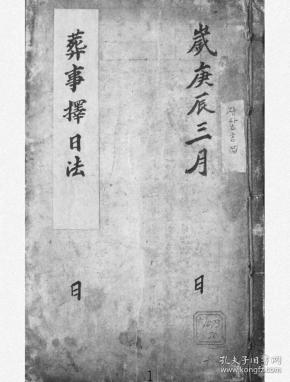 歲庚辰三月
日
葬事擇日法
日
1
孔夫子旧书网